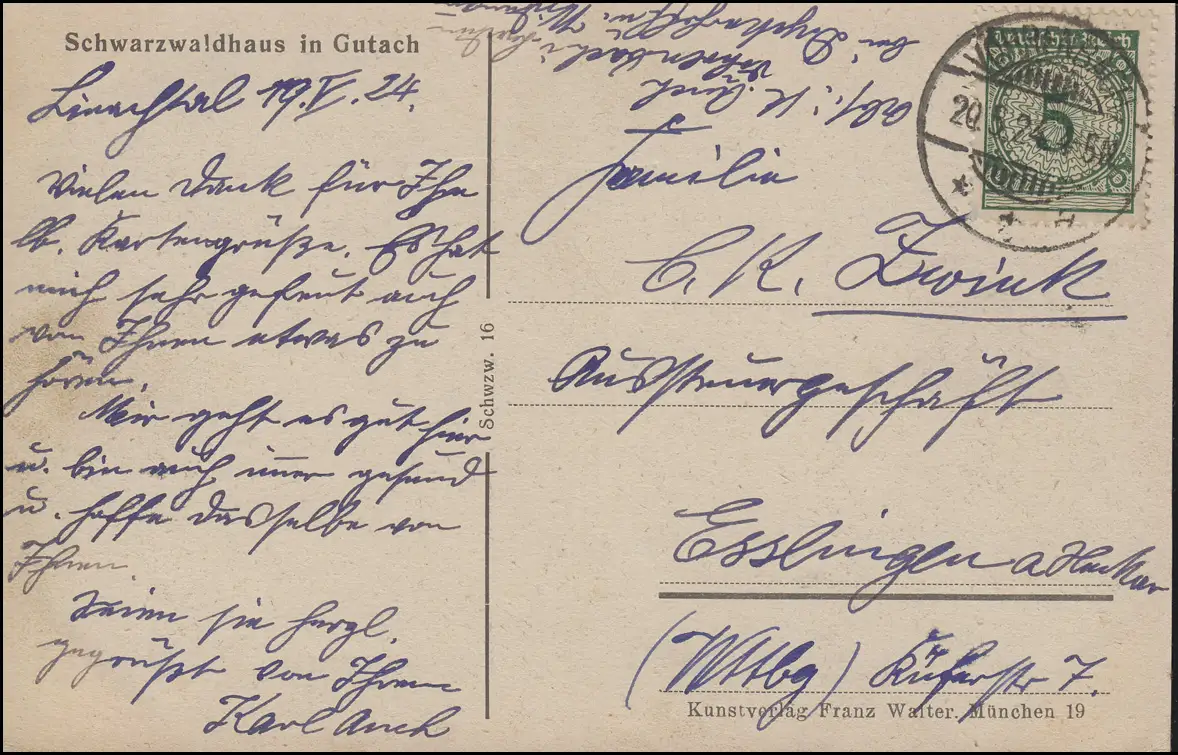 Schwarzwaldhaus in Gutach
Linachtal 19.V.24.
Vielen Dank für Ihre
lb. Kartengrüße. Es hat
mich sehr gefreut auch
von Ihnen etwas zu
hören.
Mir geht es gut hier
u. bin auch immer gesund
u. hoffe dasselbe von
Ihnen.
Seien sie herzl.
gegrüßt von Ihrem
Karl Auch
Schwzw. 16
Abs: K. Auch
bei
Familie
C. K. Zwink
Aussteuergeschäft
Esslingen a Neckar
(Wttbg) Küferstr 7.
Kunstverlag Franz Walter. München 19
Deutsches Reich
5
20.5.24